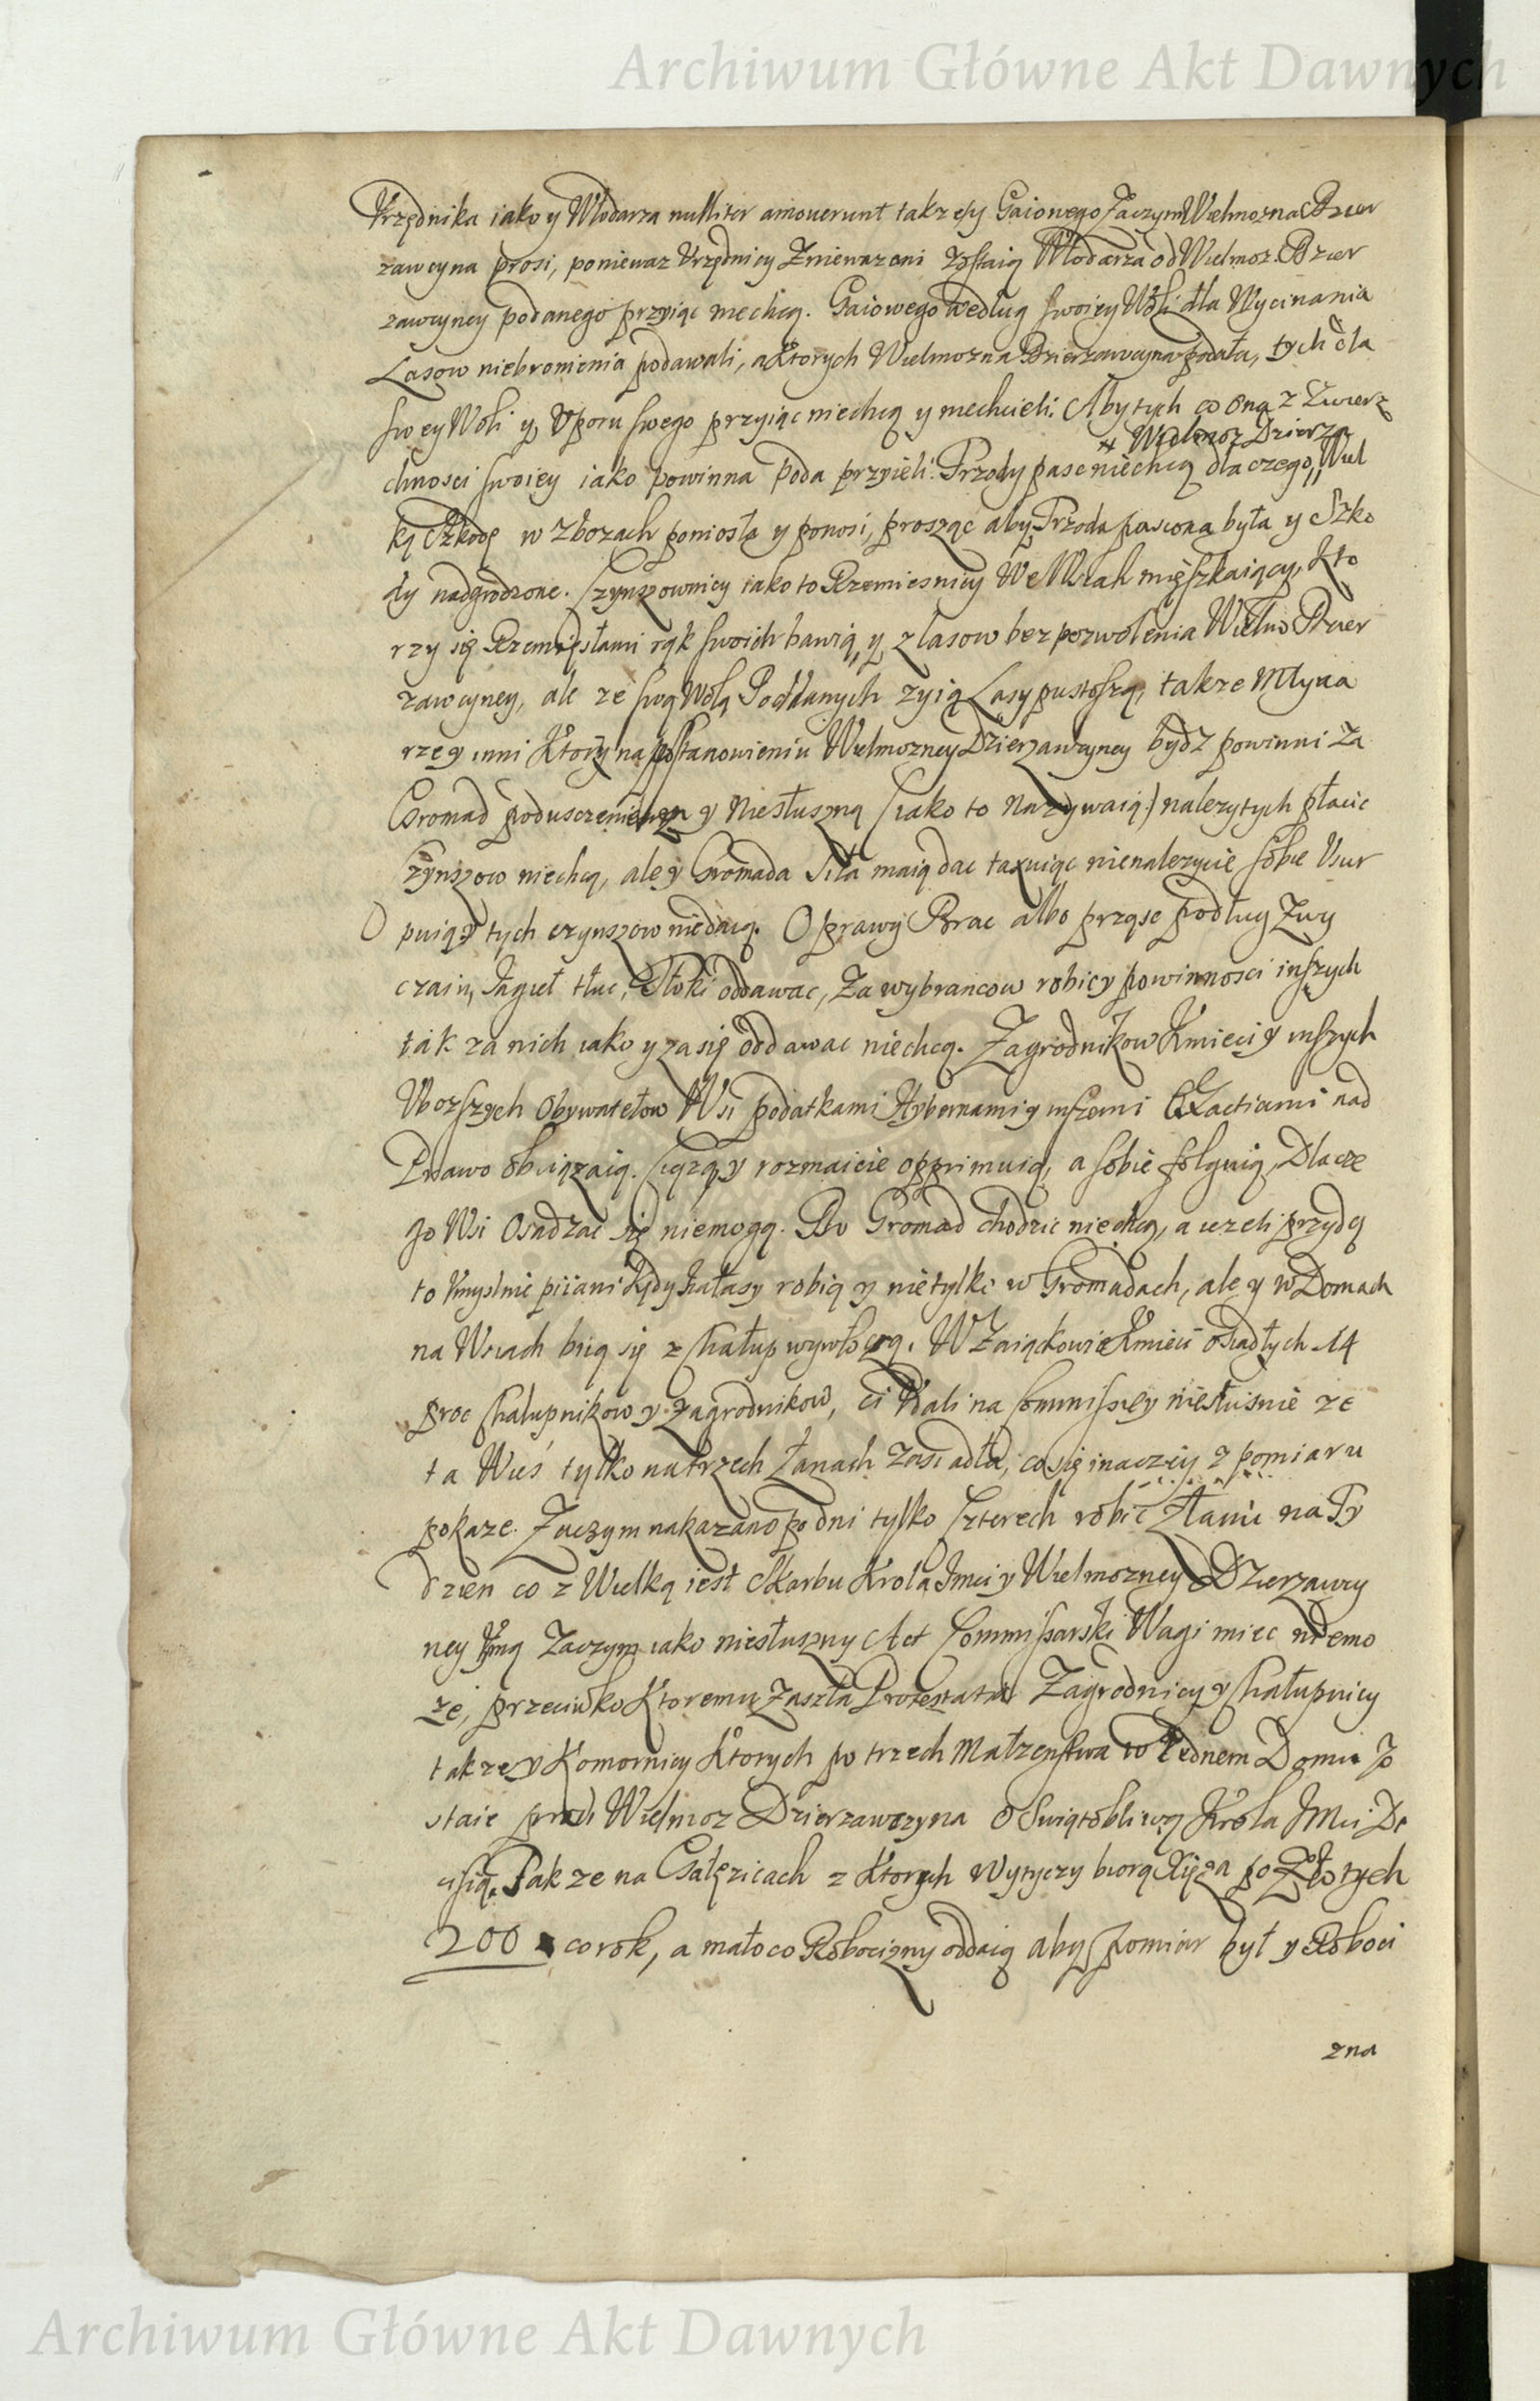 Archiwum Główne Akt Dawnych
Vrzędnika iako y Włodarza nulliter amouerunt takze y Gaionego Zaczym Wielmozna Dzier
zawcyna prosi, poniewaz Vrzędnicy Zniewazani zostaią Włodarza od Wielmoz. Dzier
zawcyney podanego przyiąc niechcą. Gaiowego według swoiey Woli dla Wycinania
Lasow niebronienia podawali, a Ktorych Wielmozna Dzierzawcyna podała, tych dla
swey Woli y Vporu swego przyiąc niechcą y niechcieli. Aby tych co Ona z Zwierz
+ Wielmoz Dzierza
chnosci swoiey iako powinna poda przyieli. Trzody pasc niechcą dla czego, Wiel
ką Szkodę w Zbozach poniosła y ponosi, prosząc aby Trzoda pasiona była y Szko
dy nadgrodzone. Czynszownicy iako to Rzemiesnicy We Wsiah mięszkaiący, Kto
rzy się Rzemięsłami rąk swoich bawią, y z lasow bez pozwolenia Wielmo Dzier
zawcyney, ale ze swą Wolą Poddanych zyią Lasy pustoszą, takze Młyna
rze y inni Ktorzy na postanowieniu Wielmozney Dzierzawcyney bydz powinni za
Gromad poduszczeniem y Niesłuszną (iako to nazywaią) nalezytych płacic
Czynszow niechcą, ale y Gromada Siła maią dac taxuiąc nienalezycie sobie Vsur
puią y tych czynszow niedaią. Oprawy Brac albo prząsc podług Zwy
czaiu, Jagieł tłuc, Stoki oddawac, Za wybrancow robic y powinnosci inszych
tak za nich iako y za się oddawac niechcą. Zagrodnikow Kmieci y inszych
Vboższych Obywatelow Wsi podatkami Hybernami y inszemi Exactiami nad
Prawo obciązaią. Ciązą y rozmaicie opprimuią, a sobie folguią, Dla cze
go Wsi Osadzac się niemogą. Do Gromad chodzic niechcą, a iezeli przydą
to Vmyslnie piiani Kędy hałasy robią y nie tylko w Gromadach, ale y w Domach
na Wsiach biią się z Chałup wywłoczą. W Zaiączkowie Kmieci osiadłych 14
proc Chałupnikow y Zagrodnikow, ci Vdali na Commissiey niesłusznie ze
ta Wieś tylko na trzech Łanach zasiadła, co się inaczey z pomiaru
pokaze. Zaczym nakazano po dni tylko Czterech robic z Łanu na Ty
dzien co z Wielką iest Skarbu Krola Jmci y Wielmozney Dzierzawcy
ney Vimą Zaczym iako niesłuszny Act Commissarski Wagi miec niemo
ze, przeciwko Ktoremu zaszła Protestatia Zagrodnicy y Chałupnicy
takze y Komornicy Ktorych po trzech Małzenstwa w Jednem Domu zo
staie prosi Wielmoz Dzierzawczyna o Swiątobliwą Krola JMci De
cisią. Takze na Gałęzicach z Ktorych Wytyczy biorą Xięza po Złotych
200 co rok, a mało co Robocizny oddaią aby pomiar był y Roboci
zna
Archiwum Główne Akt Dawnych